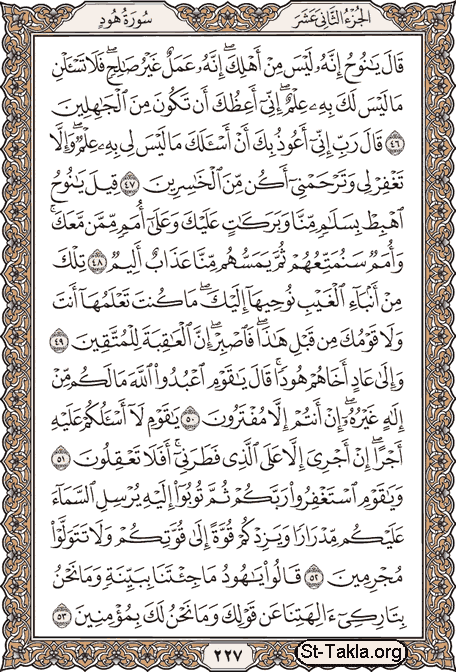 الجزء الثاني عشر
سورة هود
قَالَ يَٰنُوحُ إِنَّهُۥ لَيْسَ مِنْ أَهْلِكَۖ إِنَّهُۥ عَمَلٌ غَيْرُ صَٰلِحٖۖ فَلَا تَسْـَٔلْنِ
مَا لَيْسَ لَكَ بِهِۦ عِلْمٌۖ إِنِّيٓ أَعِظُكَ أَن تَكُونَ مِنَ ٱلْجَٰهِلِينَ
٤٦ قَالَ رَبِّ إِنِّيٓ أَعُوذُ بِكَ أَنْ أَسْـَٔلَكَ مَا لَيْسَ لِي بِهِۦ عِلْمٌۖ وَإِلَّا
تَغْفِرْ لِي وَتَرْحَمْنِيٓ أَكُن مِّنَ ٱلْخَٰسِرِينَ ٤٧ قِيلَ يَٰنُوحُ
ٱهْبِطْ بِسَلَٰمٖ مِّنَّا وَبَرَكَٰتٍ عَلَيْكَ وَعَلَىٰٓ أُمَمٖ مِّمَّن مَّعَكَۚ
وَأُمَمٌ سَنُمَتِّعُهُمْ ثُمَّ يَمَسُّهُم مِّنَّا عَذَابٌ أَلِيمٌ ٤٨ تِلْكَ
مِنْ أَنۢبَآءِ ٱلْغَيْبِ نُوحِيهَآ إِلَيْكَۖ مَا كُنتَ تَعْلَمُهَآ أَنتَ
وَلَا قَوْمُكَ مِن قَبْلِ هَٰذَاۖ فَٱصْبِرْۖ إِنَّ ٱلْعَٰقِبَةَ لِلْمُتَّقِينَ ٤٩
وَإِلَىٰ عَادٍ أَخَاهُمْ هُودٗاۚ قَالَ يَٰقَوْمِ ٱعْبُدُواْ ٱللَّهَ مَا لَكُم مِّنْ
إِلَٰهٍ غَيْرُهُۥٓۖ إِنْ أَنتُمْ إِلَّا مُفْتَرُونَ ٥٠ يَٰقَوْمِ لَآ أَسْـَٔلُكُمْ عَلَيْهِ
أَجْرًاۖ إِنْ أَجْرِيَ إِلَّا عَلَى ٱلَّذِي فَطَرَنِيٓۚ أَفَلَا تَعْقِلُونَ ٥١
وَيَٰقَوْمِ ٱسْتَغْفِرُواْ رَبَّكُمْ ثُمَّ تُوبُوٓاْ إِلَيْهِ يُرْسِلِ ٱلسَّمَآءَ
عَلَيْكُم مِّدْرَارٗا وَيَزِدْكُمْ قُوَّةً إِلَىٰ قُوَّتِكُمْ وَلَا تَتَوَلَّوْاْ
مُجْرِمِينَ ٥٢ قَالُواْ يَٰهُودُ مَا جِئْتَنَا بِبَيِّنَةٖ وَمَا نَحْنُ
بِتَارِكِيٓ ءَالِهَتِنَا عَن قَوْلِكَ وَمَا نَحْنُ لَكَ بِمُؤْمِنِينَ ٥٣
٢٢٧
St-Takla.org